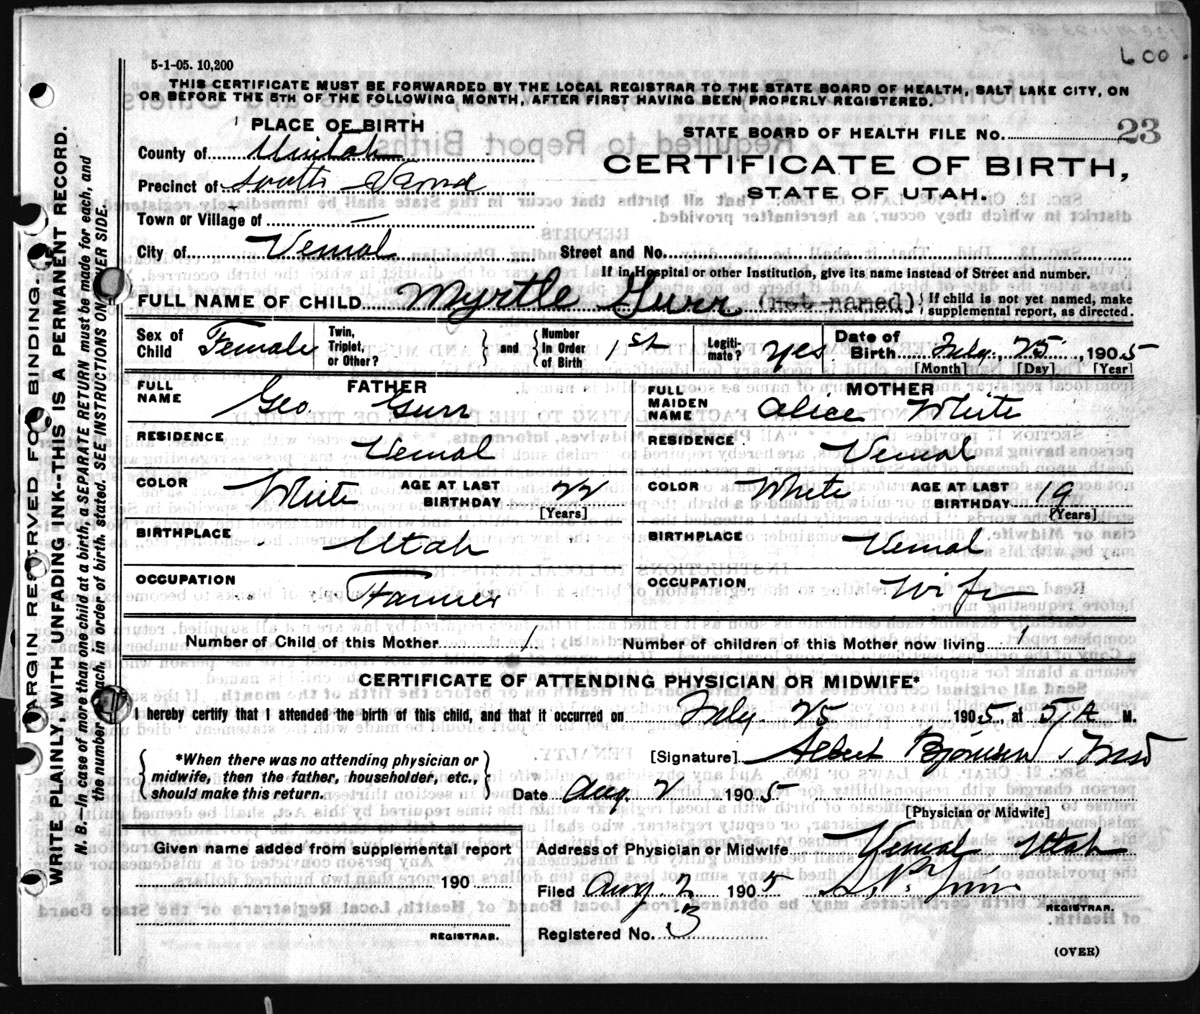 600
5-1-05. 10,200
THIS CERTIFICATE MUST BE FORWARDED BY THE LOCAL REGISTRAR TO THE STATE BOARD OF HEALTH, SALT LAKE CITY, ON
OR BEFORE THE 5TH OF THE FOLLOWING MONTH, AFTER FIRST HAVING BEEN PROPERLY REGISTERED.
PLACE OF BIRTH
STATE BOARD OF HEALTH FILE NO. 23
County of Uintah
CERTIFICATE OF BIRTH,
Precinct of South Vernal
STATE OF UTAH.
Town or Village of —
City of Vernal Street and No.
If in Hospital or other Institution, give its name instead of Street and number.
FULL NAME OF CHILD Myrtle Gurr (not named) { If child is not yet named, make supplemental report, as directed.
Sex of Child Female Twin, Triplet, or Other? } and { Number in Order of Birth 1st Legiti-mate? yes Date of Birth July 25, 1905
[Month] [Day] [Year]
FATHER
MOTHER
FULL NAME Geo Gurr
FULL MAIDEN NAME Alice White
RESIDENCE Vernal
RESIDENCE Vernal
COLOR White AGE AT LAST BIRTHDAY 22 [Years]
COLOR White AGE AT LAST BIRTHDAY 19 [Years]
BIRTHPLACE Utah
BIRTHPLACE Vernal
OCCUPATION Farmer
OCCUPATION Wife
Number of Child of this Mother 1 Number of children of this Mother now living 1
CERTIFICATE OF ATTENDING PHYSICIAN OR MIDWIFE*
I hereby certify that I attended the birth of this child, and that it occurred on July 25 1905, at 5/A M.
*When there was no attending physician or
midwife, then the father, householder, etc.,
should make this return.
[Signature] Albert
Date Aug 2 1905
[Physician or Midwife]
Given name added from supplemental report
190
REGISTRAR.
Address of Physician or Midwife Vernal Utah
Filed Aug 2 1905
REGISTRAR.
Registered No. 3
(OVER)
MARGIN RESERVED FOR BINDING.
WRITE PLAINLY WITH UNFADING INK--THIS IS A PERMANENT RECORD.
N. B.—In case of more than one child at a birth, a SEPARATE RETURN must be made for each, and
the number of each, in order of birth, stated. SEE INSTRUCTIONS ON OTHER SIDE.